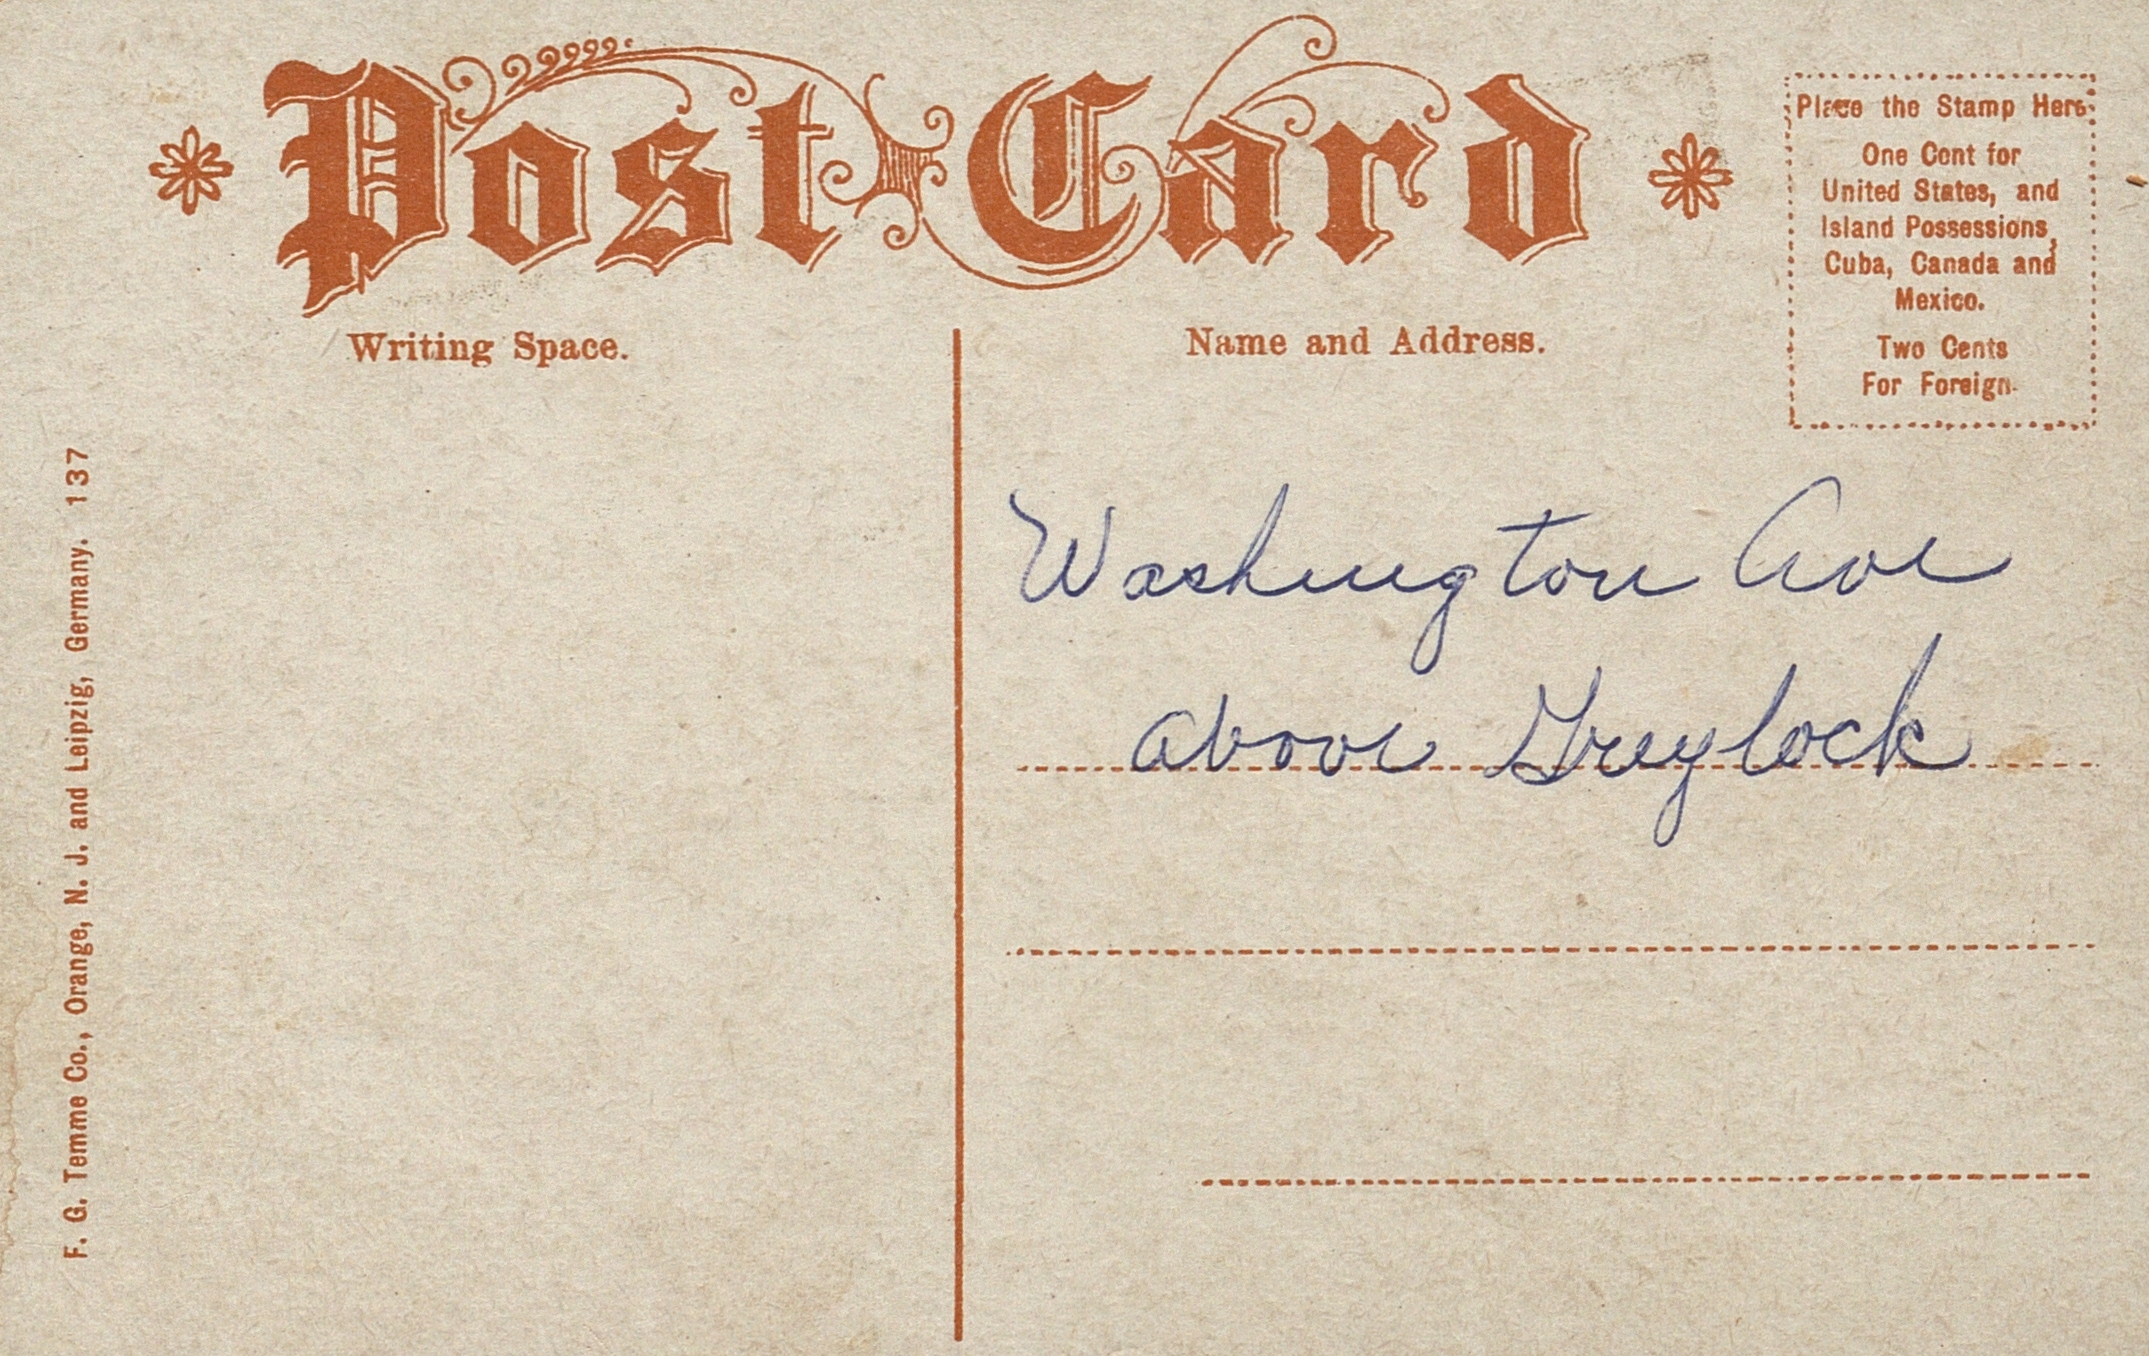 Post Card
Place the Stamp Here
One Cent for
United States, and
Island Possessions,
Cuba, Canada and
Mexico.
Two Cents
For Foreign.
Writing Space.
Name and Address.
Washington Ave
above Greylock
F. G. Temme Co., Orange, N. J. and Leipzig, Germany. 137